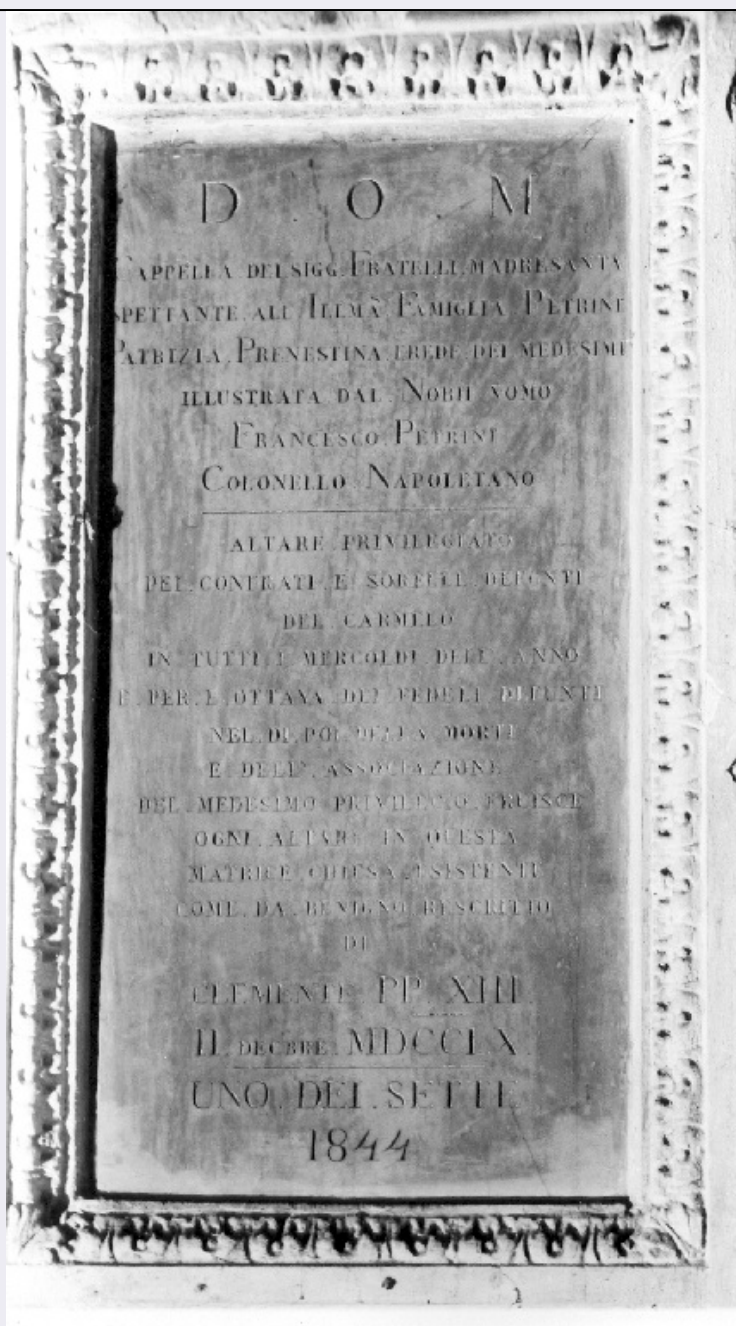 D . O . M
CAPPELLA DEI SIGG. FRATELLI MADRESANTA
SPETTANTE ALL ILLMA FAMIGLIA PETRINI
PATRIZIA PRENESTINA EREDE DEI MEDESIMI
ILLUSTRATA DAL NOBIL VOMO
FRANCESCO PETRINI
COLONELLO NAPOLETANO
ALTARE PRIVILEGIATO
PEI CONFRATI E SORELLE DEFUNTI
DEL CARMELO
IN TUTTI I MERCOLDI DELL' ANNO
E PER L OTTAVA DEI FEDELI DEFUNTI
NEL DI POI DELLA MORTE
E DELL' ASSOCIAZIONE
DEL MEDESIMO PRIVILEGIO FRUISCE
OGNI ALTARE IN QUESTA
MATRICE CHIESA ESISTENTE
COME DA BENIGNO RESCRITTO
DI
CLEMENTE PP. XIII.
II DECBRE MDCCLX.
UNO DEI SETTE
1844